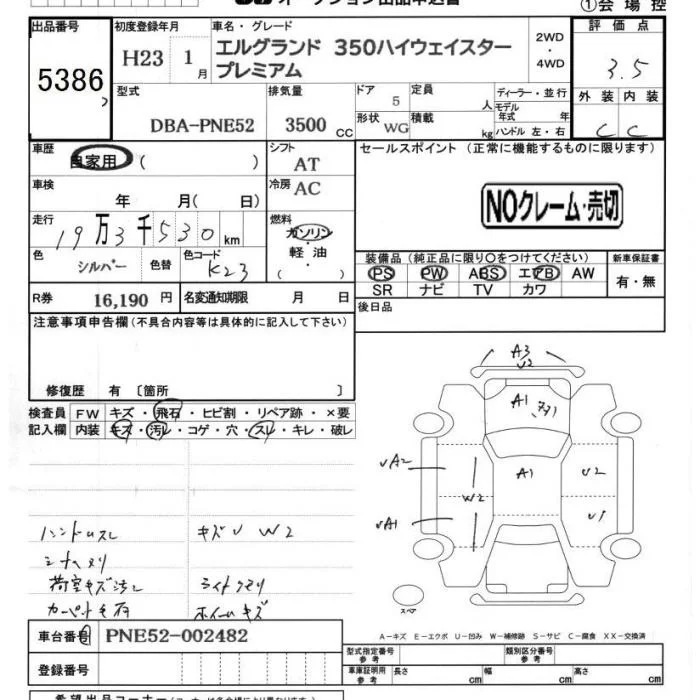 オークション出品申込書
①会場控
出品番号 5386
初度登録年月 H23 1月
車名・グレード エルグランド 350ハイウェイスター
プレミアム
2WD
・
4WD
評価点 3.5
型式 DBA-PNE52
排気量 3500 CC
ドア 5
形状 WG
定員 人
積載 kg
ディーラー・並行
モデル年式 年
ハンドル 左・右
外装 内装
C C
車歴 自家用 ( )
シフト AT
車検 年 月( 日)
冷房 AC
走行 19万3千530km
燃料 ガソリン
軽・油
( )
色 シルバー 色替 色コード K23
R券 16,190 円
名変通知期限 月 日
セールスポイント (正常に機能するものに限ります)
NOクレーム・売切
装備品(純正品に限り○をつけてください)
新車保証書
PS PW ABS エアB AW
SR ナビ TV カワ
有・無
後日品
注意事項申告欄(不具合内容等は具体的に記入して下さい)
修復歴 有〔箇所 〕
検査員 FW キズ・飛石・ヒビ割・リペア跡・×要
記入欄 内装 キズ・汚レ・コゲ・穴・スレ・キレ・破レ
ハンドルスレ キズU W2
荷室キズ汚レ ライトクモリ
ホイールキズ
A3
U2
A1
A1
W2
U2
U1
スペア
A-キズ E-エクボ U-凹み W-補修跡 S-サビ C-腐食 XX-交換済
車台番号 PNE52-002482
登録番号
型式指定番号
参考
類別区分番号
参考
車庫証明用
参考
長さ cm 幅 cm 高さ cm
希望出品コーナー